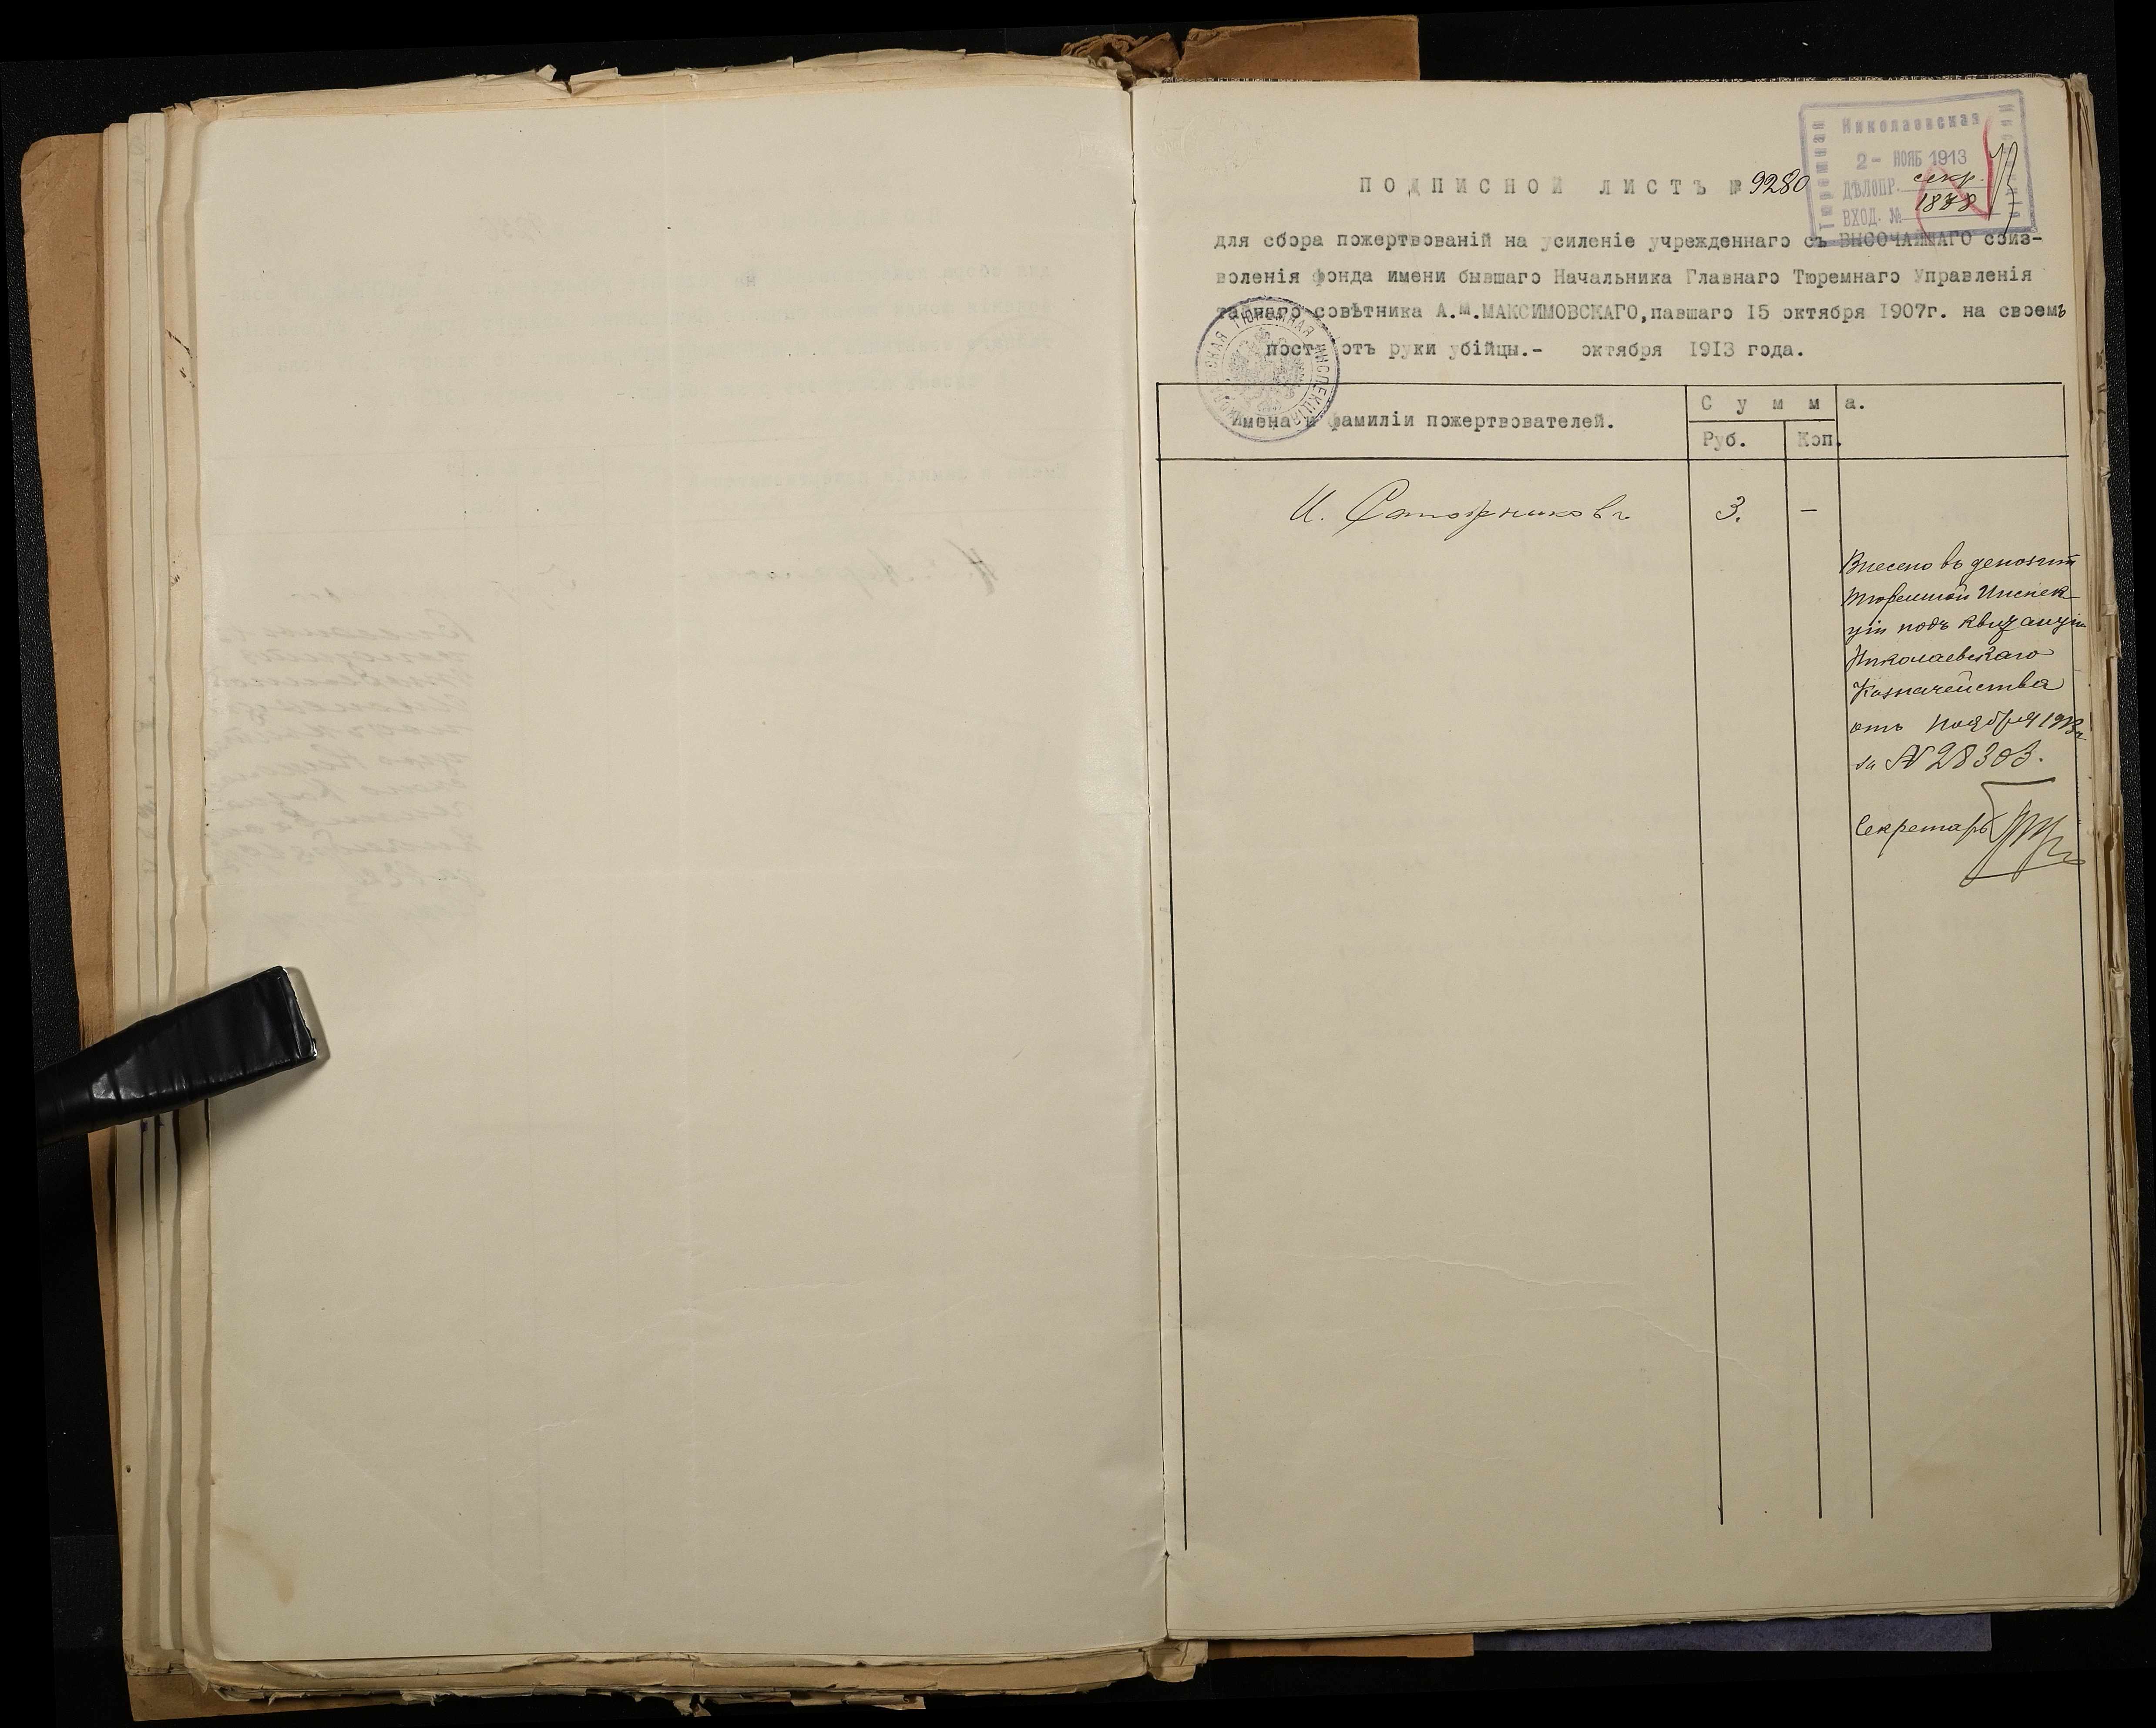 Николаевская
Тюремная
2- НОЯБ 1913
ДѢЛОПР. секр.
ВХОД. №
ПОДПИСНОЙ ЛИСТЪ № 9280
для сбора пожертвованій на усиленіе учрежденнаго съ ВЫСОЧАЙШАГО соиз-
воленія фонда имени бывшаго Начальника Главнаго Тюремнаго Управленія
тайнаго совѣтника А.М.МАКСИМОВСКАГО, павшаго 15 октября 1907г. на своемъ
посту отъ руки убійцы.- октября 1913 года.
ТЮРЕМНАЯ ИНСПЕКЦІЯ
Имена и фамиліи пожертвователей.
Сумма.
Руб. Коп.
И. 3. –
Внесено въ депозит
Тюремной Инспек-
ціи подъ квитанціи
Николаевскаго
Казначейства
отъ Ноября 1913г
за № 28303.
Секретарь